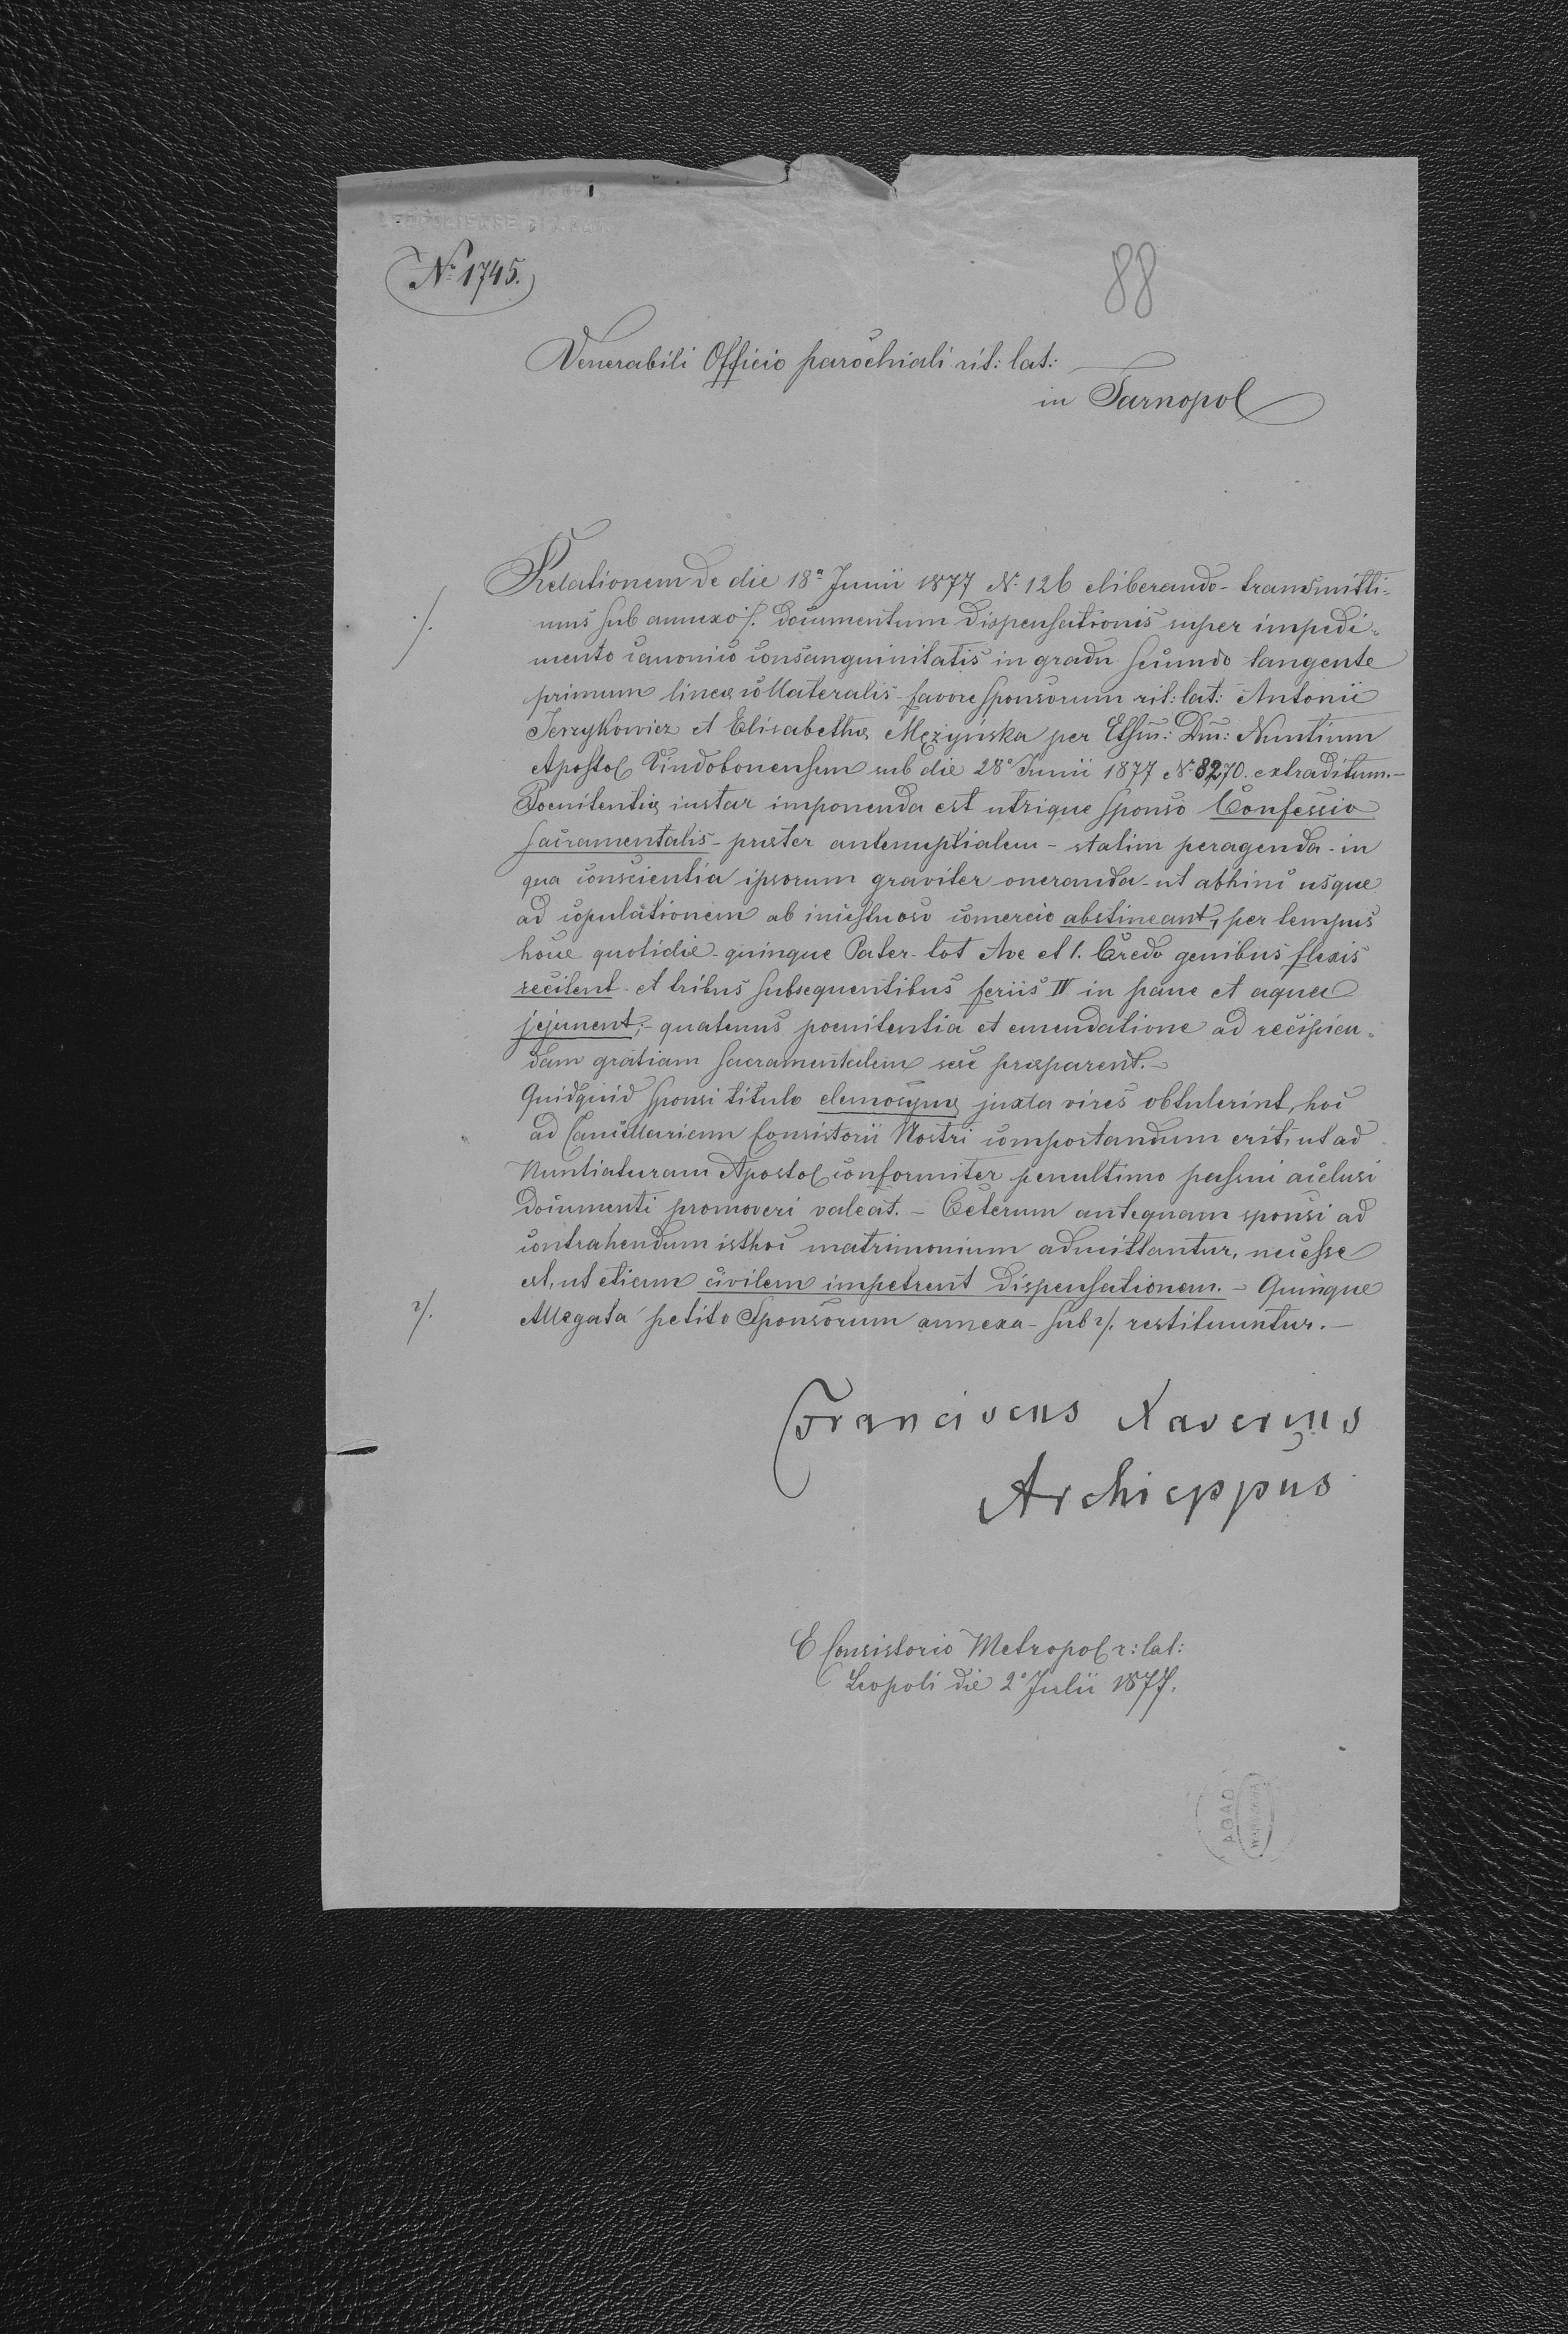 Nº 1745.
88
Venerabili Officio parochiali rit: lat:
in Tarnopol
Relationem de die 18ª Junii 1877 N. 126 eliberando - transmitti-
·/.
mus sub annexo ·/. documentum dispensationis super impedi-
mento canonico consanguinitatis in gradu secundo tangente
primum lineæ collateralis - favore sponsorum rit: lat: Antonii
Jerzykowicz et Elisabethæ Mężyńska per Dm: Nuntium
Apostol Vindobonensem sub die 28º Junii 1877 N. 8270. extraditum.-
Poenitentiæ instar imponenda est utrique sponso Confessio
sacramentalis - præter antenuptialem - statim peragenda - in
qua conscientia ipsorum graviter oneranda - ut abhinc usque
ad copulationem ab incestuoso comercio abstineant, per tempus
hocce quotidie - quinque Pater - tot Ave et 1. Credo genibus flexis
recitent - et tribus subsequentibus feriis IV in pane et aqua
jejunent; - quatenus poenitentia et emendatione ad recipien-
dam gratiam sacramentalem sese præparent. -
Quidquid sponsi titulo elemosynæ juxta vires obtulerint, hoc
ad Cancellariam Consistorii Nostri comportandum erit, ut ad
Nuntiaturam Apostol conformiter penultimo passui acclusi
documenti promoveri valeat. - Ceterum antequam sponsi ad
contrahendum isthoc matrimonium admittantur, necesse
est, ut etiam civilem impetrent dispensationem. - Quinque
2/.
Allegata petito Sponsorum annexa - sub 2/. restituuntur. -
Franciscus Xaverius
Archieppus
E Consistorio Metropol r: lat:
Leopoli die 2º Julii 1877.
AGAD